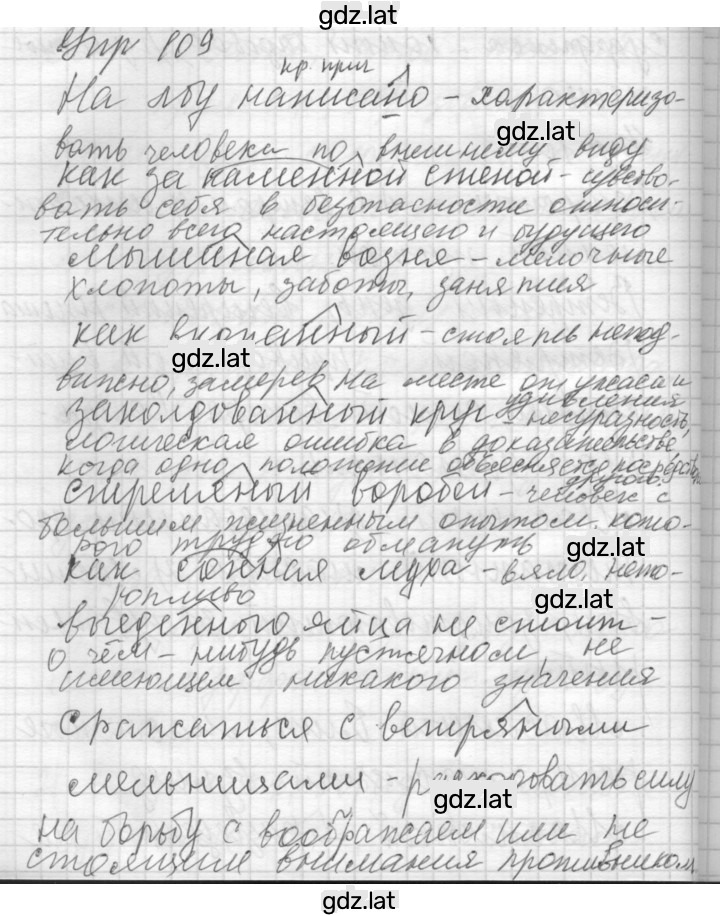 gdz.lat
Упр 109
кр. прич
На лбу написано - характеризо-
gdz.lat
вать человека по внешнему виду
как за каменной стеной - чувство-
вать себя в безопасности относи-
тельно всего настоящего и будущего
мышиная возня - мелочные
хлопоты, заботы, занятия
как вкопанный - стоя лев непод-
gdz.lat
вижно, замерев на месте от ужаса и
удивления
заколдованный круг - несуразность,
логическая ошибка в доказательстве,
когда одно положение объясняется посредством
другого
стреляный воробей - человек с
большим жизненным опытом, кото-
рого трудно обмануть
gdz.lat
как сонная муха - вяло, нето-
ропливо
gdz.lat
выеденного яйца не стоит -
о чём-нибудь пустячном, не
имеющем никакого значения
Сражаться с ветряными
мельницами - расходовать силу
gdz.lat
на борьбу с воображаем или не
стоящим внимания противником
gdz.lat